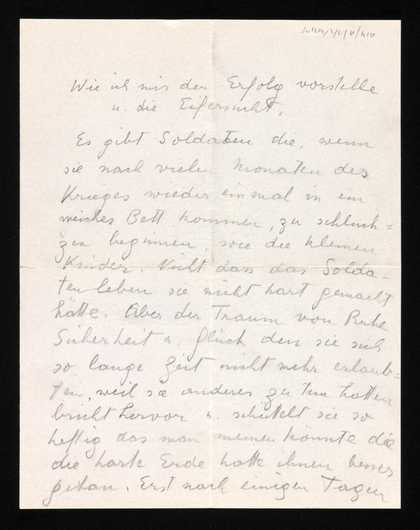 Wie ich mir den Erfolg vorstelle
u. die Eifersucht.
Es gibt Soldaten die, wenn
sie nach vielen Monaten des
Krieges wieder einmal in ein
weiches Bett kommen, zu schluch=
zen beginnen, wie die kleinen
Kinder. Nicht dass das Solda-
ten leben sie nicht hart gemacht
hätte. Aber der Traum von Ruhe
Sicherheit u. Glück den sie sich
so lange Zeit nicht mehr erlaub-
ten, weil sie anderes zu tun hatten
bricht hervor u. schüttelt sie so
heftig das man meinen könnte die
die harte Erde hätte ihnen besser
getan. Erst nach einigen Tagen